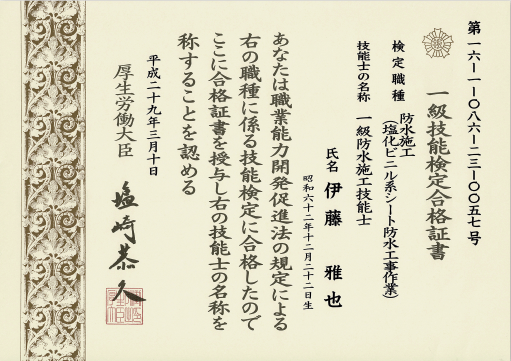 第一六ー一ー〇八六ー二三ー〇〇五七号
一級技能検定合格証書
検定職種　防水施工
（塩化ビニル系シート防水工事作業）
技能士の名称　一級防水施工技能士
氏名　伊藤　雅也
昭和六十二年十二月二十二日生
あなたは職業能力開発促進法の規定による
右の職種に係る技能検定に合格したので
ここに合格証書を授与し右の技能士の名称を
称することを認める
平成二十九年三月十日
厚生労働大臣　塩崎恭久